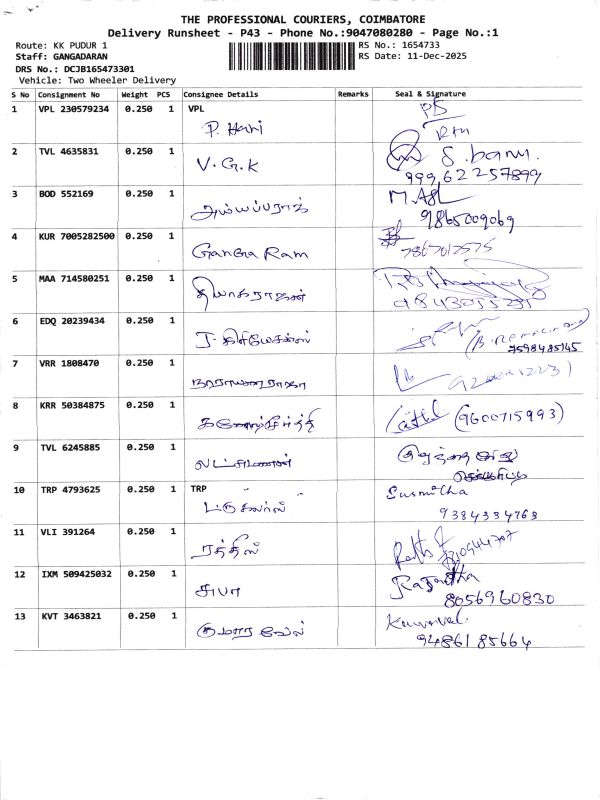 THE PROFESSIONAL COURIERS, COIMBATORE
Delivery Runsheet - P43 - Phone No.:9047080280 - Page No.:1
Route: KK PUDUR 1
RS No.: 1654733
Staff: GANGADARAN
RS Date: 11-Dec-2025
DRS No.: DCJB165473301
Vehicle: Two Wheeler Delivery
S No Consignment No Weight PCS Consignee Details Remarks Seal & Signature
1 VPL 230579234 0.250 1 VPL
P. Hari
2 TVL 4635831 0.250 1
V.G.K S.banu.
99962257899
3 BOD 552169 0.250 1
அய்யப்பராஜ் 9865009069
4 KUR 7005282500 0.250 1
Ganga Ram
5 MAA 714580251 0.250 1
தியாகராஜன்
6 EDQ 20239434 0.250 1
7598485145
7 VRR 1808470 0.250 1
நாராயணராஜா
8 KRR 50384875 0.250 1
(9600715993)
9 TVL 6245885 0.250 1
லட்சுமணன்
10 TRP 4793625 0.250 1 TRP
Susmitha
9384334768
11 VLI 391264 0.250 1
ரத்தீஸ்
12 IXM 509425032 0.250 1
சுபா
8056960830
13 KVT 3463821 0.250 1
குமாரவேல்
9486185664